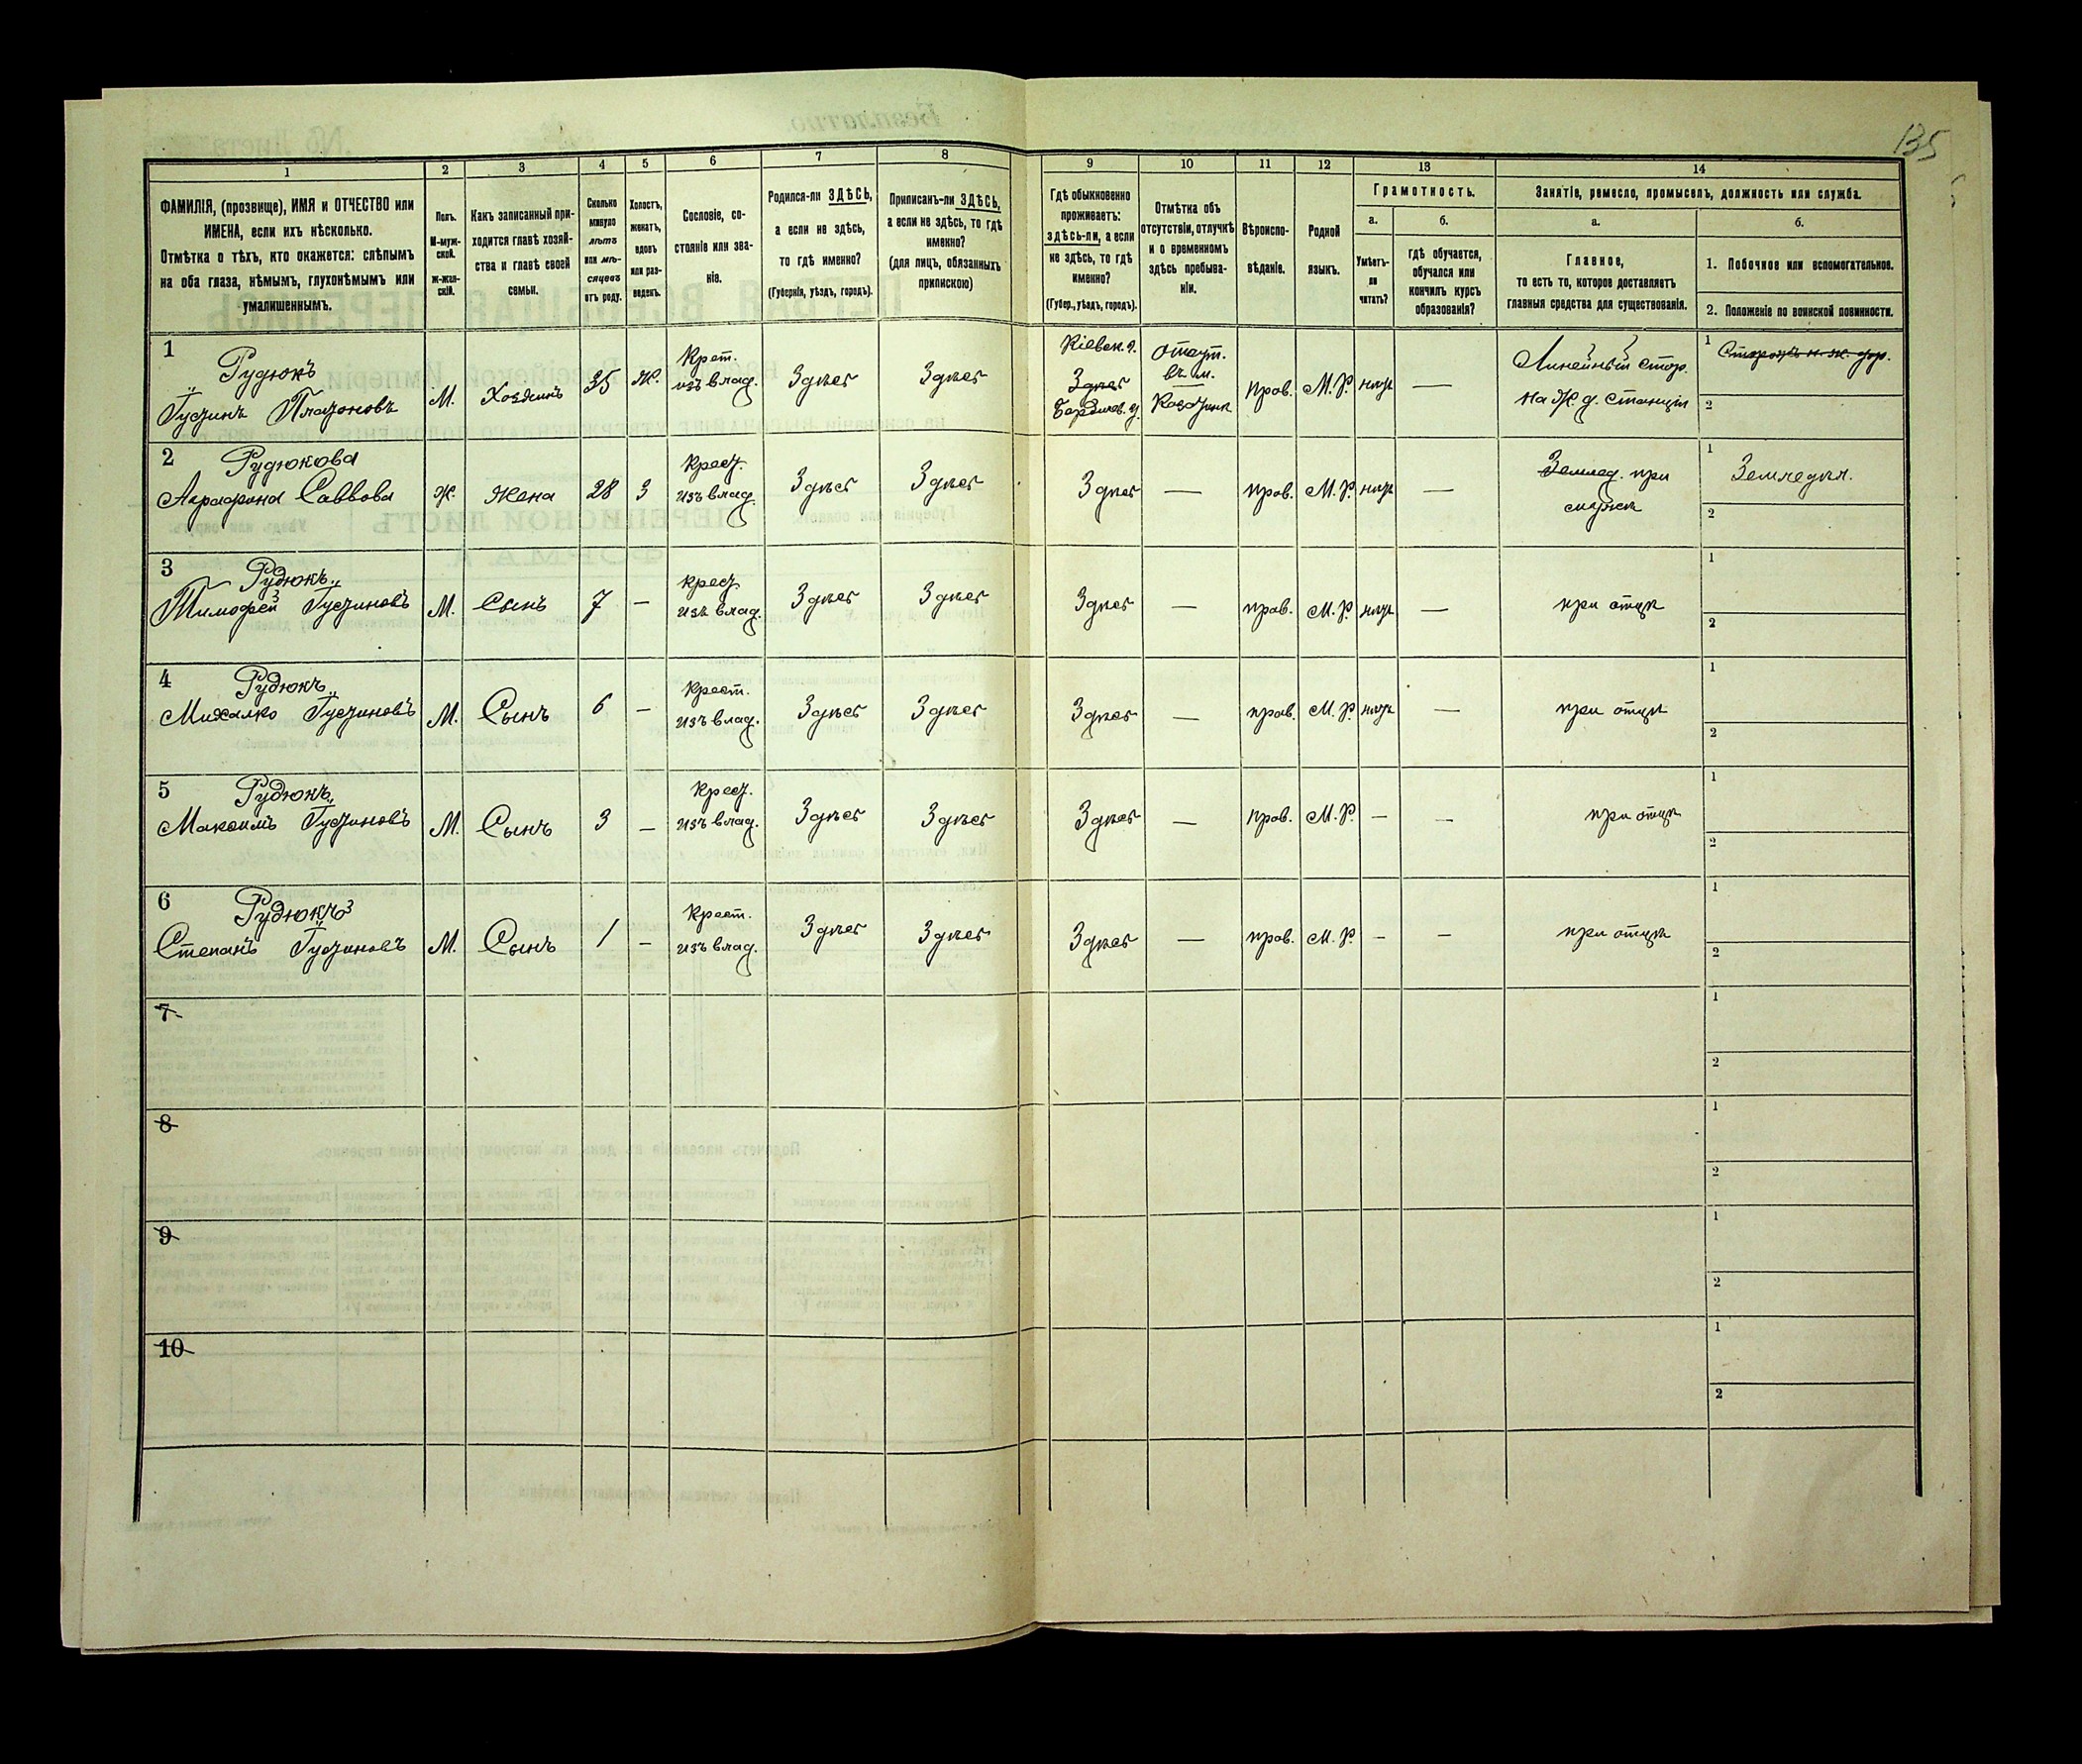 135
1
2
3
4
5
6
7
8
9
10
11
12
13
14
ФАМИЛІЯ, (прозвище), ИМЯ и ОТЧЕСТВО или
ИМЕНА, если ихъ нѣсколько.
Отмѣтка о тѣхъ, кто окажется: слѣпымъ
на оба глаза, нѣмымъ, глухонѣмымъ или
умалишеннымъ.
Полъ.
М-муж-
ской.
Ж-жен-
скій.
Какъ записанный при-
ходится главѣ хозяй-
ства и главѣ своей
семьи.
Сколько
минуло
лѣтъ
или мѣ-
сяцевъ
отъ роду.
Холостъ,
женатъ,
вдовъ
или раз-
веденъ.
Сословіе, со-
стояніе или зва-
ніе.
Родился-ли ЗДѢСЬ,
а если не здѣсь,
то гдѣ именно?
(Губернія, уѣздъ, городъ).
Приписанъ-ли ЗДѢСЬ,
а если не здѣсь, то гдѣ
именно?
(для лицъ, обязанныхъ
припискою)
Гдѣ обыкновенно
проживаетъ:
здѣсь-ли, а если
не здѣсь, то гдѣ
именно?
(Губер., уѣздъ, городъ).
Отмѣтка объ
отсутствіи, отлучкѣ
и о временномъ
здѣсь пребыва-
ніи.
Вѣроиспо-
вѣданіе.
Родной
языкъ.
Грамотность.
а.
Умѣетъ-
ли
читать?
б.
гдѣ обучается,
обучался или
кончилъ курсъ
образованія?
Занятіе, ремесло, промыселъ, должность или служба.
а.
Главное,
то есть то, которое доставляетъ
главныя средства для существованія.
б.
1. Побочное или вспомогательное.
2. Положеніе по воинской повинности.
1
Рудюкъ
Густинъ Платоновъ
М. Хозяинъ 35 Ж.
Крест.
изъ влад.
Здѣсь Здѣсь
Кіевск. г.
Здѣсь
Бердичев. у.
Отсут.
въ м.
прав. М.Р. нѣтъ —
Линейный стор.
на Ж. д. станціи
1 Сторожъ н. ж. дор.
2
2 Рудюкова
Аграфена Саввова
Ж. Жена 28 З
Крест.
изъ влад.
Здѣсь Здѣсь Здѣсь — прав. М.Р. нѣтъ —
Землед. при
мужѣ
1 Земледѣл.
2
3 Рудюкъ
Тимофей Густиновъ
М. Сынъ 7 —
крест.
изъ влад.
Здѣсь Здѣсь Здѣсь — прав. М.Р. нѣтъ — при отцѣ
1
2
4 Рудюкъ
Михалко Густиновъ
М. Сынъ 6 —
Крест.
изъ влад.
Здѣсь Здѣсь Здѣсь — прав. М.Р. нѣтъ — при отцѣ
1
2
5 Рудюкъ
Максимъ Густиновъ
М. Сынъ 3 —
Крест.
изъ влад.
Здѣсь Здѣсь Здѣсь — прав. М.Р. — — при отцѣ
1
2
6 Рудюкъ
Степанъ Густиновъ
М. Сынъ 1 —
Крест.
изъ влад.
Здѣсь Здѣсь Здѣсь — прав. М.Р. — — при отцѣ
1
2
7
1
2
8
1
2
9
1
2
10
1
2